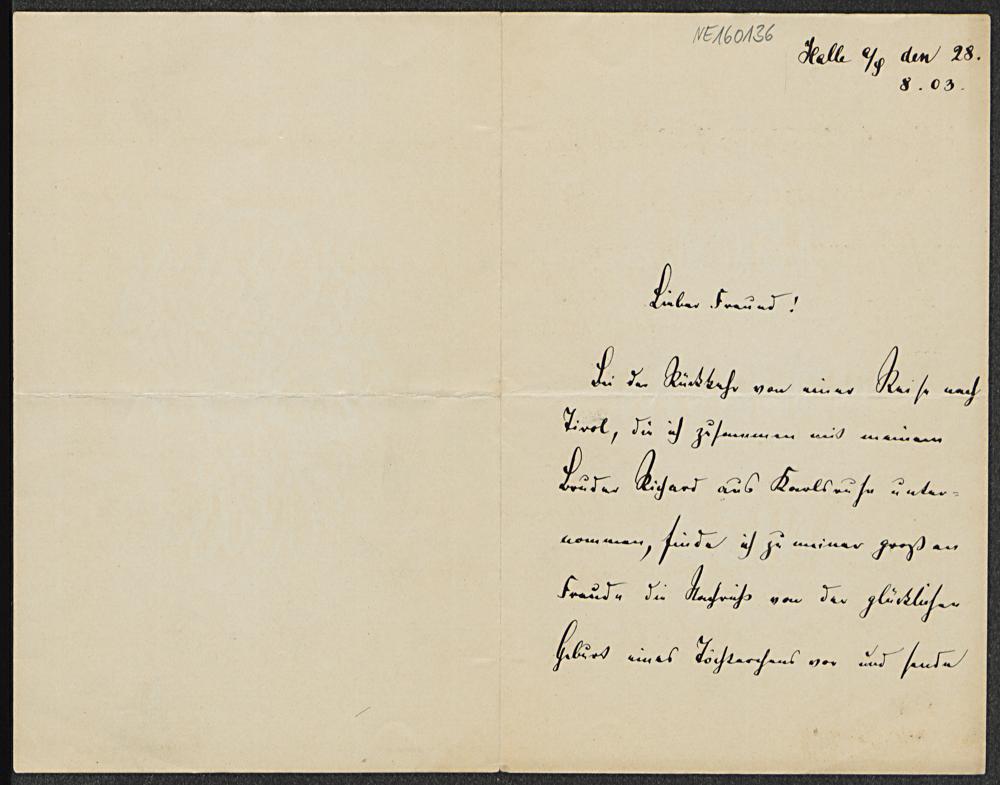 NE160136
Halle a/S den 28.
8. 03.
Lieber Freund!
Bei der Rückkehr von einer Reise nach
Tirol, die ich zusammen mit meinem
Bruder Richard aus Karlsruhe unter-
nommen, finde ich zu meiner großen
Freude die Nachricht von der glücklichen
Geburt eines Töchterchens vor und sende